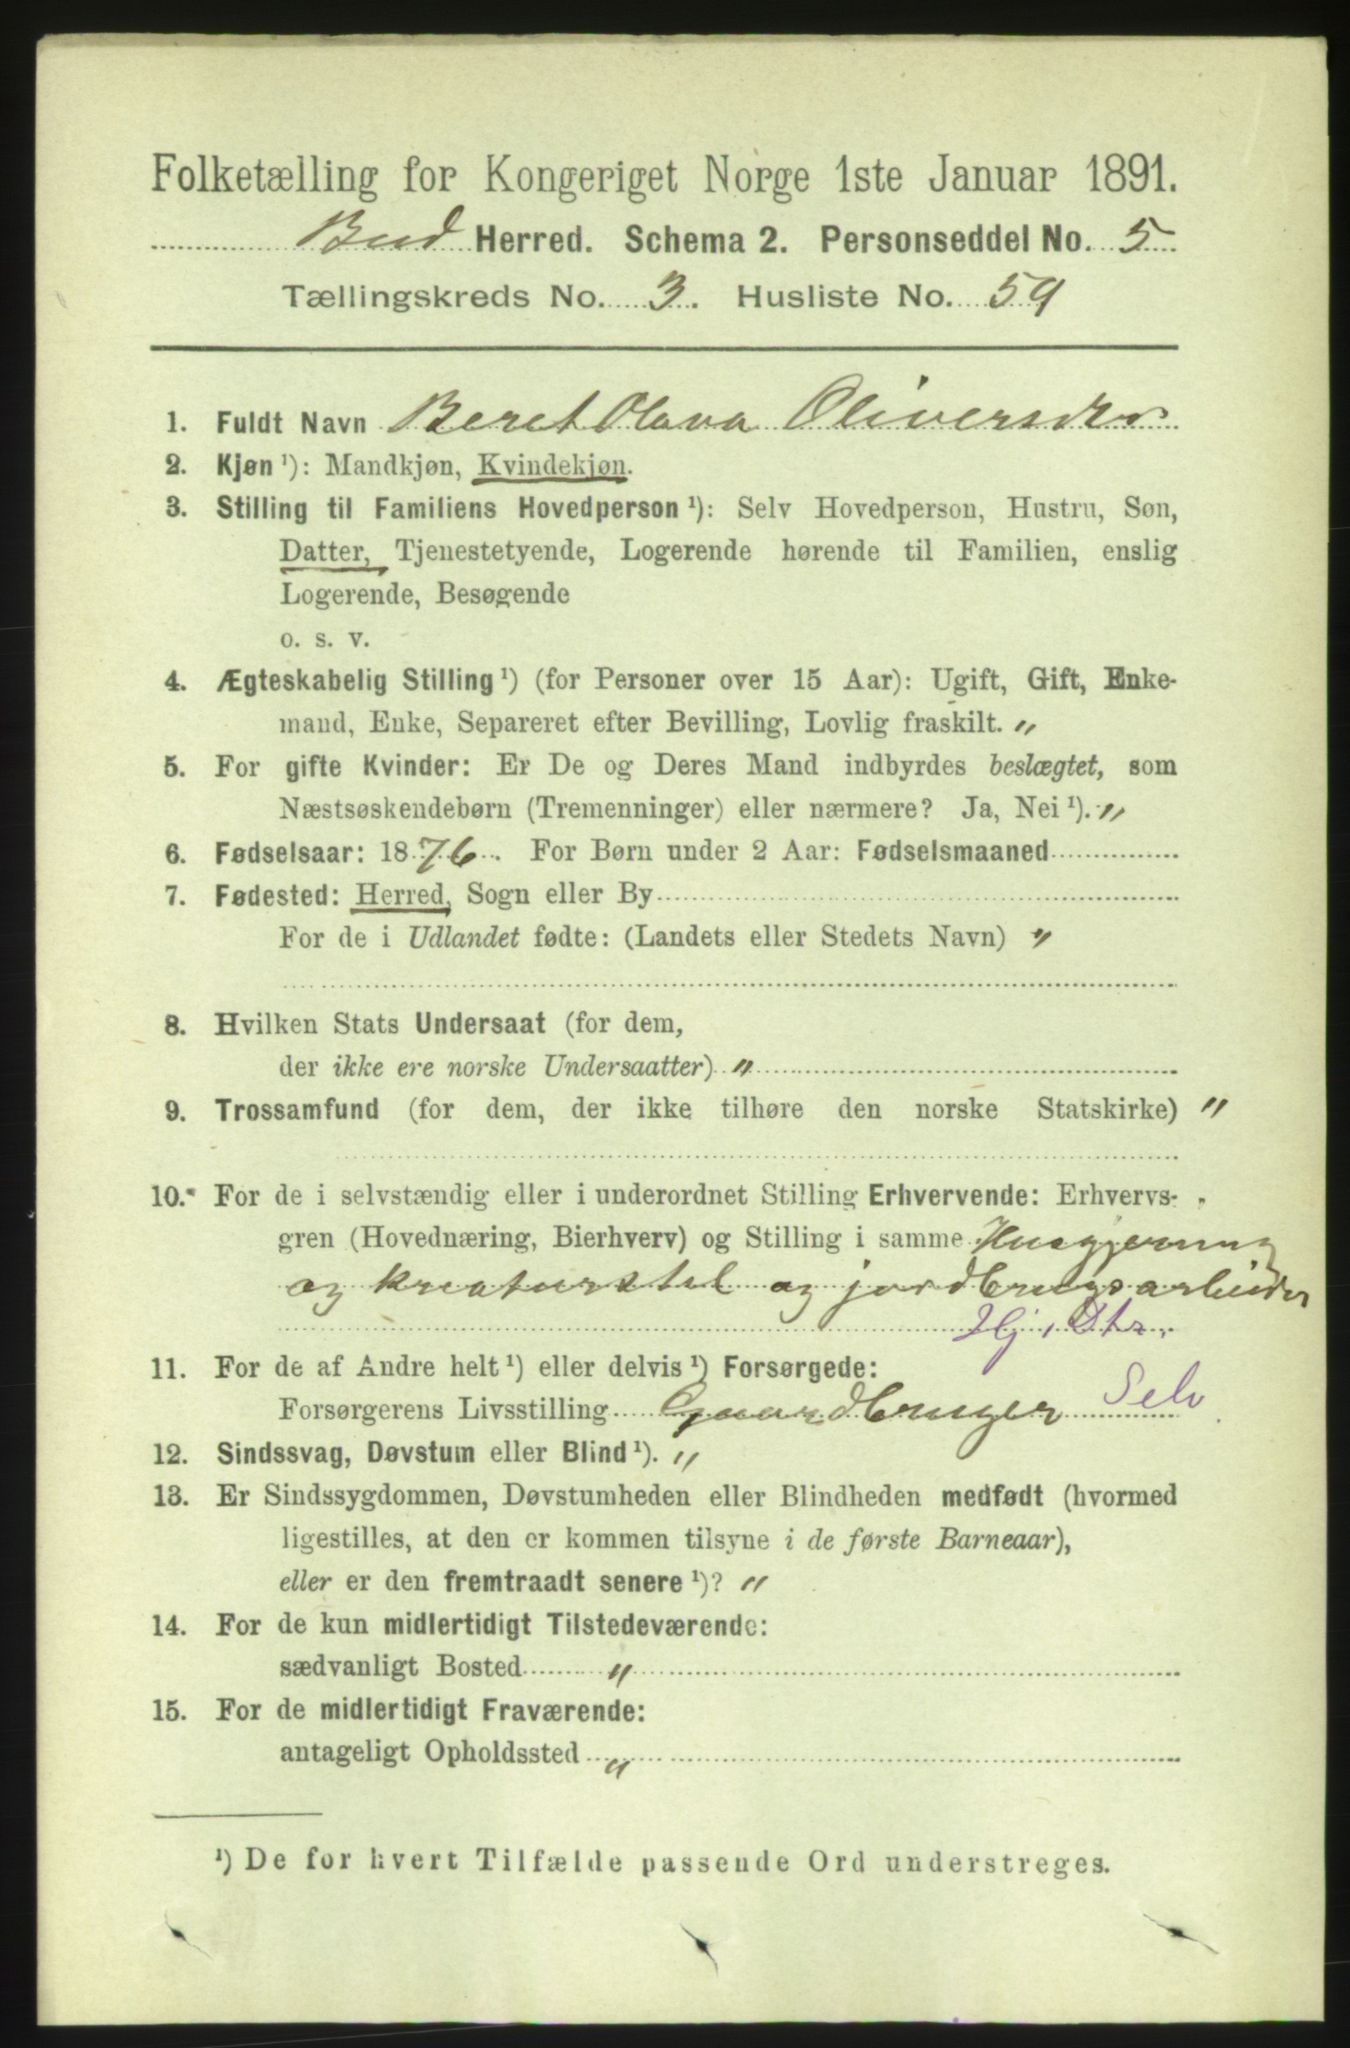 Folketælling for Kongeriget Norge 1ste Januar 1891.
Bud Herred. Schema 2. Personseddel No. 5
Tællingskreds No. 3. Husliste No. 59
1. Fuldt Navn Beret Olava Oliversdr
2. Kjøn ¹): Mandkjøn, Kvindekjøn.
3. Stilling til Familiens Hovedperson ¹): Selv Hovedperson, Hustru, Søn,
Datter, Tjenestetyende, Logerende hørende til Familien, enslig
Logerende, Besøgende
o. s. v.
4. Ægteskabelig Stilling ¹) (for Personer over 15 Aar): Ugift, Gift, Enke-
mand, Enke, Separeret efter Bevilling, Lovlig fraskilt. "
5. For gifte Kvinder: Er De og Deres Mand indbyrdes beslægtet, som
Næstsøskendebørn (Tremenninger) eller nærmere? Ja, Nei ¹). "
6. Fødselsaar: 1876. For Børn under 2 Aar: Fødselsmaaned
7. Fødested: Herred, Sogn eller By
For de i Udlandet fødte: (Landets eller Stedets Navn) "
8. Hvilken Stats Undersaat (for dem,
der ikke ere norske Undersaatter) "
9. Trossamfund (for dem, der ikke tilhøre den norske Statskirke) "
10. For de i selvstændig eller i underordnet Stilling Erhvervende: Erhvervs-
gren (Hovednæring, Bierhverv) og Stilling i samme Husgjerning
og kreaturstel og jordbrugsarbeider
Hj. Dtr.
11. For de af Andre helt ¹) eller delvis ¹) Forsørgede:
Forsørgerens Livsstilling Gaardbruger Selv
12. Sindssvag, Døvstum eller Blind ¹). "
13. Er Sindssygdommen, Døvstumheden eller Blindheden medfødt (hvormed
ligestilles, at den er kommen tilsyne i de første Barneaar),
eller er den fremtraadt senere ¹)? "
14. For de kun midlertidigt Tilstedeværende:
sædvanligt Bosted "
15. For de midlertidigt Fraværende:
antageligt Opholdssted "
¹) De for hvert Tilfælde passende Ord understreges.